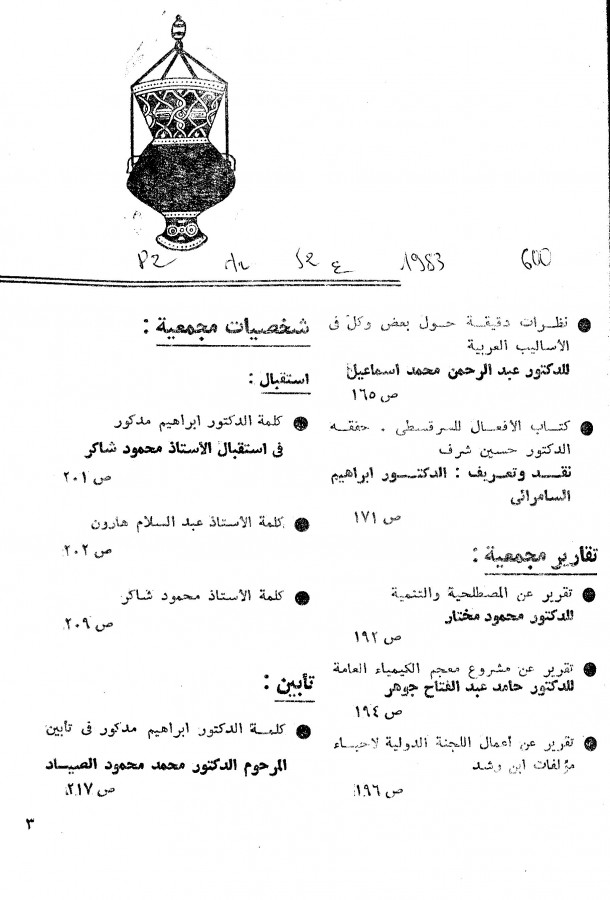 P2 1983 600
نظرات دقيقة حول بعض وكل فى
الأساليب العربية
للدكتور عبد الرحمن محمد اسماعيل
ص ١٦٥
كتاب الأفعال للسرقسطى . حققه
الدكتور حسين شرف
نقد وتعريف : الدكتور ابراهيم
السامرائى
ص ١٧١
تقارير مجمعية :
تقرير عن المصطلحية والتنمية
للدكتور محمود مختار
ص ١٩٢
تقرير عن مشروع معجم الكيمياء العامة
للدكتور حامد عبد الفتاح جوهر
ص ١٩٤
تقرير عن أعمال اللجنة الدولية لاحياء
مؤلفات ابن رشد
ص ١٩٦
شخصيات مجمعية :
استقبال :
كلمة الدكتور ابراهيم مدكور
فى استقبال الأستاذ محمود شاكر
ص ٢٠١
كلمة الاستاذ عبد السلام هارون
ص ٢٠٢
كلمة الاستاذ محمود شاكر
ص ٢٠٩
تأبين :
كلمة الدكتور ابراهيم مدكور فى تأبين
المرحوم الدكتور محمد محمود الصياد
ص ٢١٧
٣